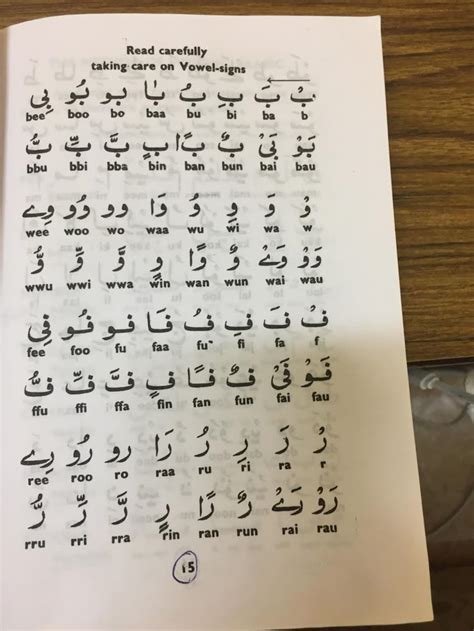 Read carefully
taking care on Vowel-signs
بْ بَ بِ بُ بَا بو بُو بِي
bee boo bo baa bu bi ba b
بَوْ بَيْ بٌ بًا بٍ بَّ بِّ بُّ
bbu bbi bba bin ban bun bai bau
وْ وَ وِ وُ وَا وو وُو وِے
wee woo wo waa wu wi wa w
وَوْ وَےْ وٌ وًا وٍ وَّ وِّ وُّ
wwu wwi wwa win wan wun wai wau
فْ فَ فِ فُ فَا فو فُو فِي
fee foo fu faa fu fi fa f
فَوْ فَيْ فٌ فًا فٍ فَّ فِّ فُّ
ffu ffi ffa fin fan fun fai fau
رْ رَ رِ رُ رَا رو رُو رِے
ree roo ro raa ru ri ra r
رَوْ رَےْ رٌ رًا رٍ رَّ رِّ رُّ
rru rri rra rin ran run rai rau
15